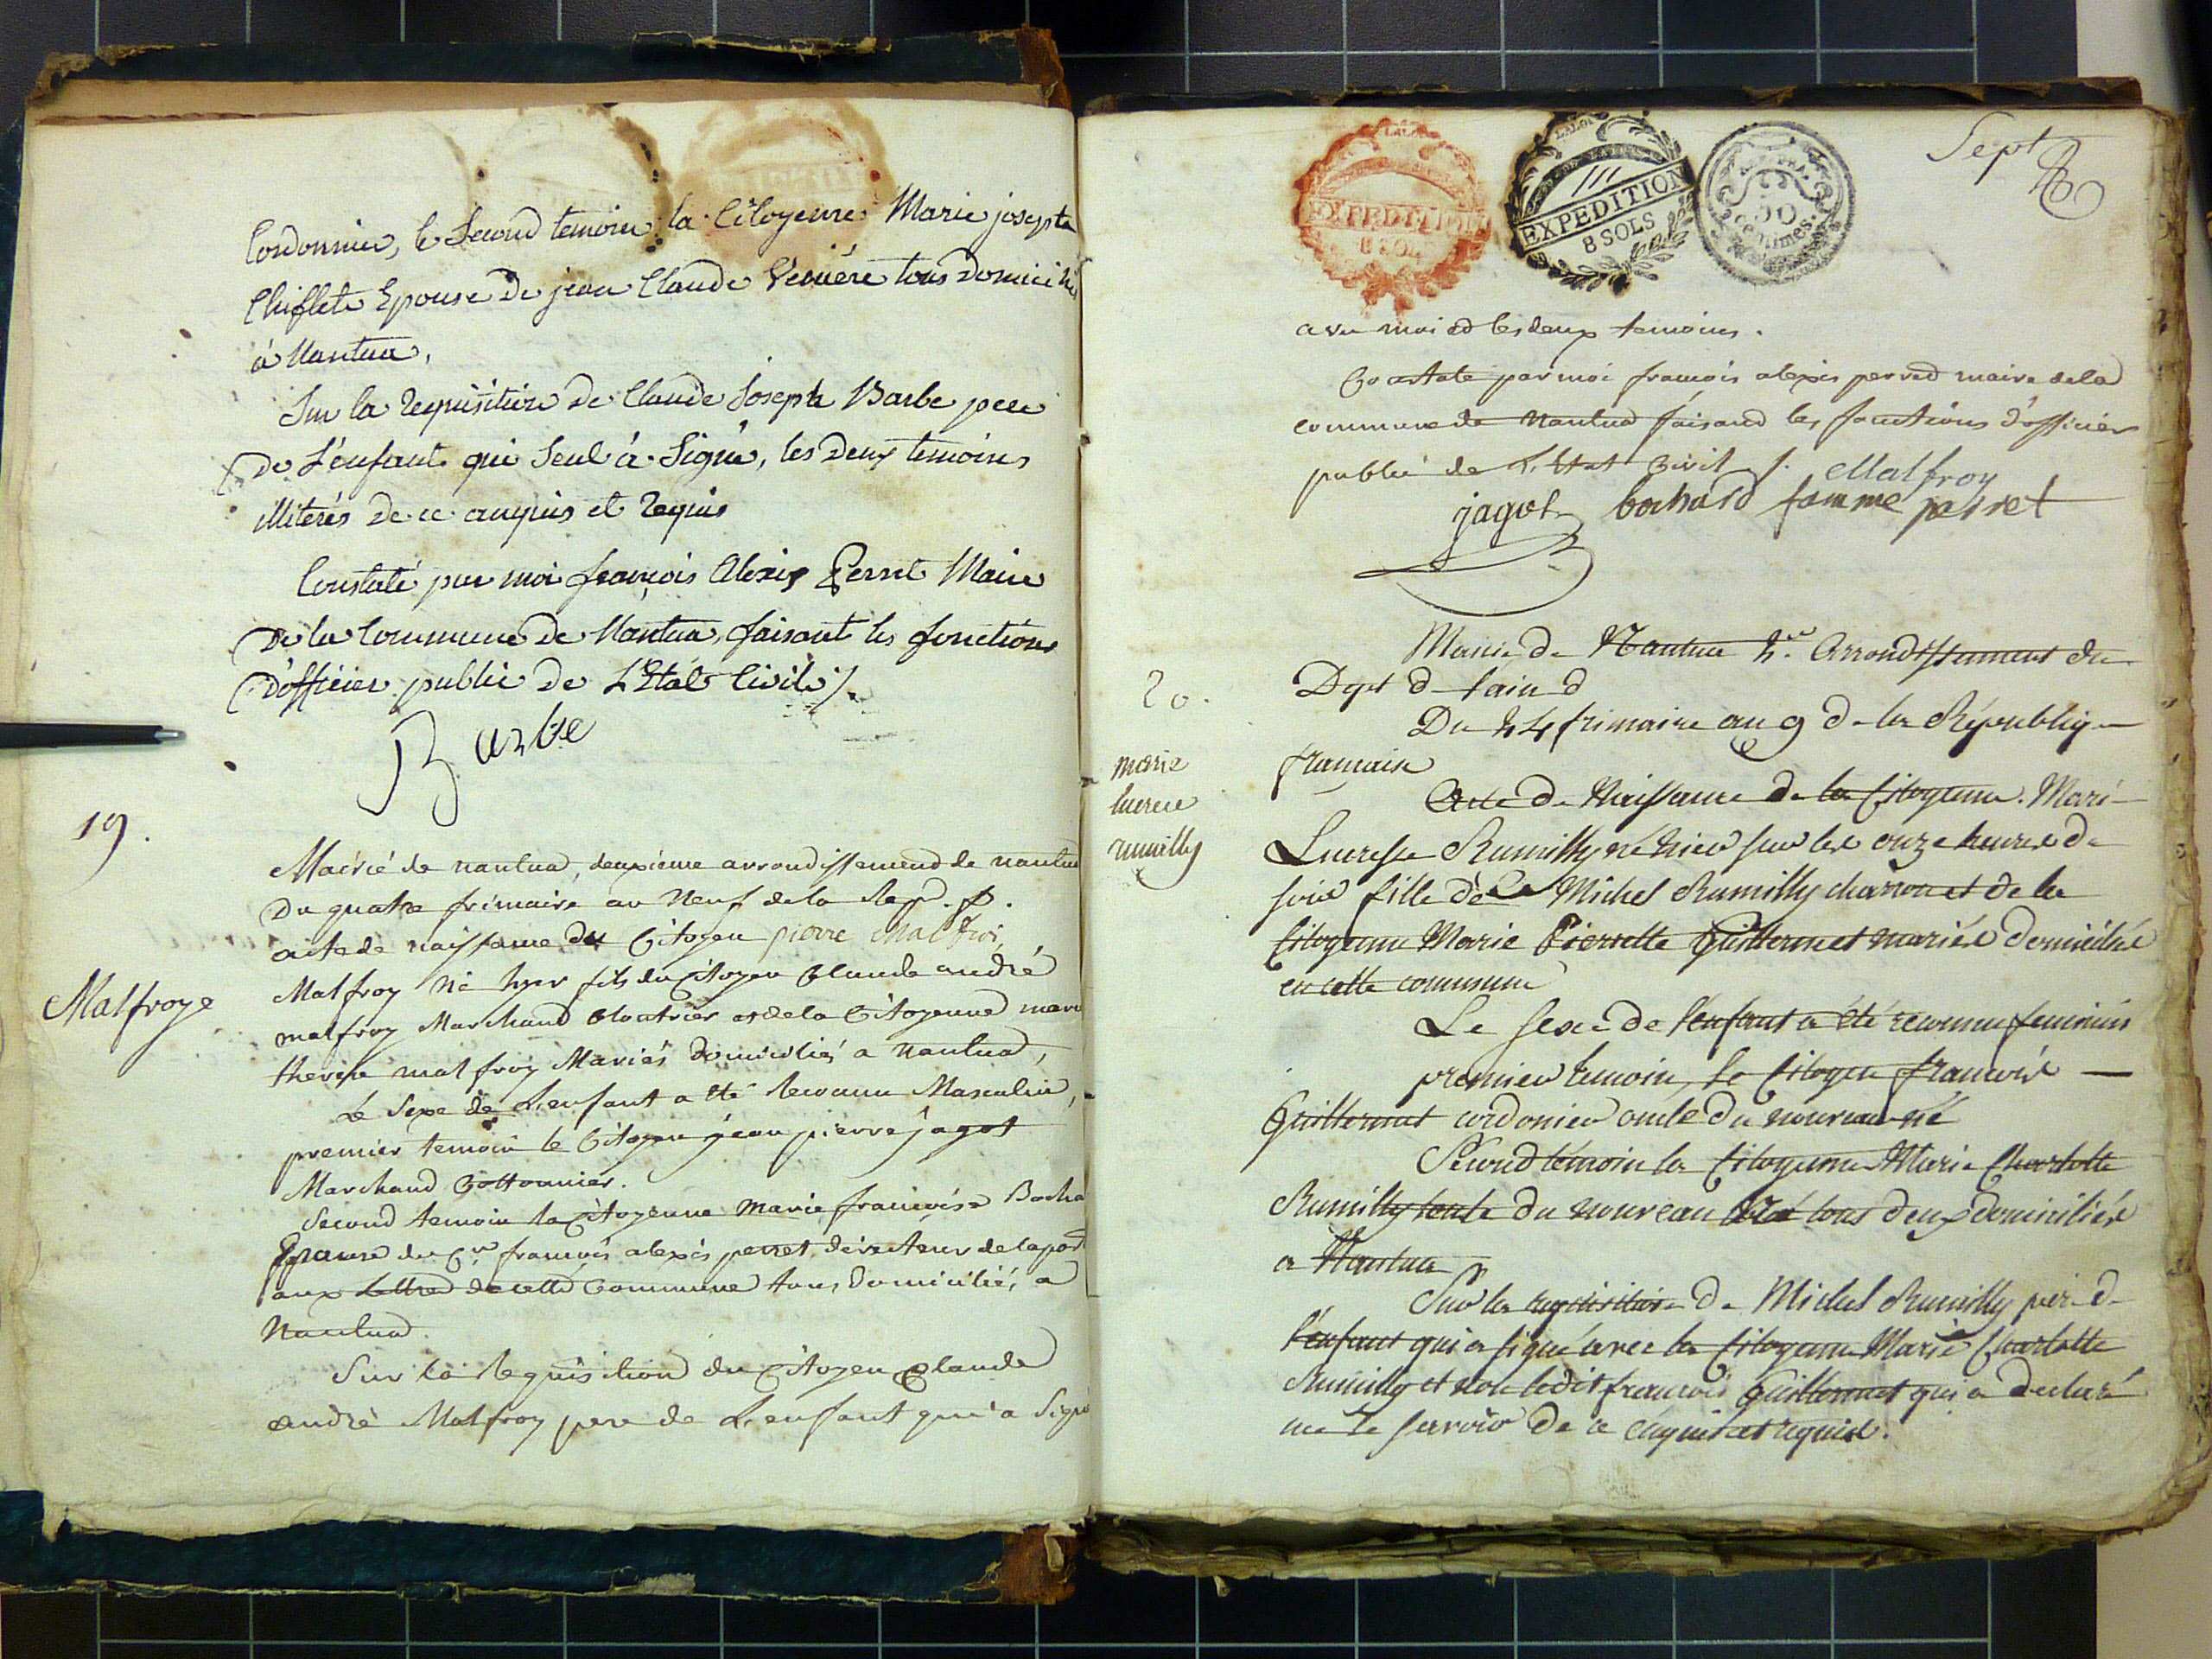 Cordonnier, le Second temoin la Citoyenne Marie josepte
Chiflet Epouse de jean Claude tous Domicilié
à Nantua,
Sur la requisition de Claude Joseph Barbe pere
De L'enfant qui Seul à Signé, les Deux temoins
illiterés de ce enquis et requis
Constaté par moi françois Alexis Perret Maire
De la Commune de Nantua, faisant les fonctions
D'officier public De L'Etat Civil ./.
Barbe
19.
Malfroye
Mairie de nantua, deuxieme arrondissement de nantua
Du quatre frimaire an Neuf de la Rep. f.
acte de naissance du Citoyen pierre Malfroi
Malfroy Né hyer fils du Citoyen Claude andré
malfroy Marchand et de la Citoyenne marie
therese malfroy Mariés domiciliés a nantua,
Le Sexe de L'enfant a été reconnu Masculin,
premier temoin le Citoyen jean pierre jagot
Marchand Cottonnier.
Second temoin la Citoyenne marie françoise Bocha
Epouse du Cen françois alexis perret directeur de la post
aux Lettres de cette Commune tous Domiciliés a
Nantua.
Sur la requisition du Citoyen Claude
andré Malfroy pere de L'enfant qui a Signé
Sept
EXPEDITION
8 SOLS
LALOI
EXPEDITION
8 SOLS
50
Centimes.
avec moi et les deux temoins.
Constaté par moi françois alexis perret maire de la
commune de Nantua faisant les fonctions d'officier
public de L'Etat Civil ./. Malfroy
jagot bochard famme perret
20.
marie
lucrece
rumilly
Mairie de Nantua 2.e Arrondissement du
Dept de lain
Du 24 frimaire an 9 de la République
francaise
Acte de Naissance de la Citoyenne Marie
Lucresse Rumilly né hier sur les onze heures de
soir fille de Michel Rumilly charron et de la
Citoyenne Marie Pierrette Guillermet mariés domiciliés
en cette commune
Le sexe de l'enfant a été reconnu feminin
premier temoin, le Citoyen francois
Guillermet cordonier oncle du nouveau né
Second témoin la Citoyenne Marie Charlotte
Rumilly tante du nouveau Né tous deux domiciliés
a Nantua
Sur la requisition de Michel Rumilly pere de
l'enfant qui a signé avec la Citoyenne Marie Charlotte
Rumilly et non ledit francois Guillermet qui a declaré
ne le savoir de ce enquis et requis.